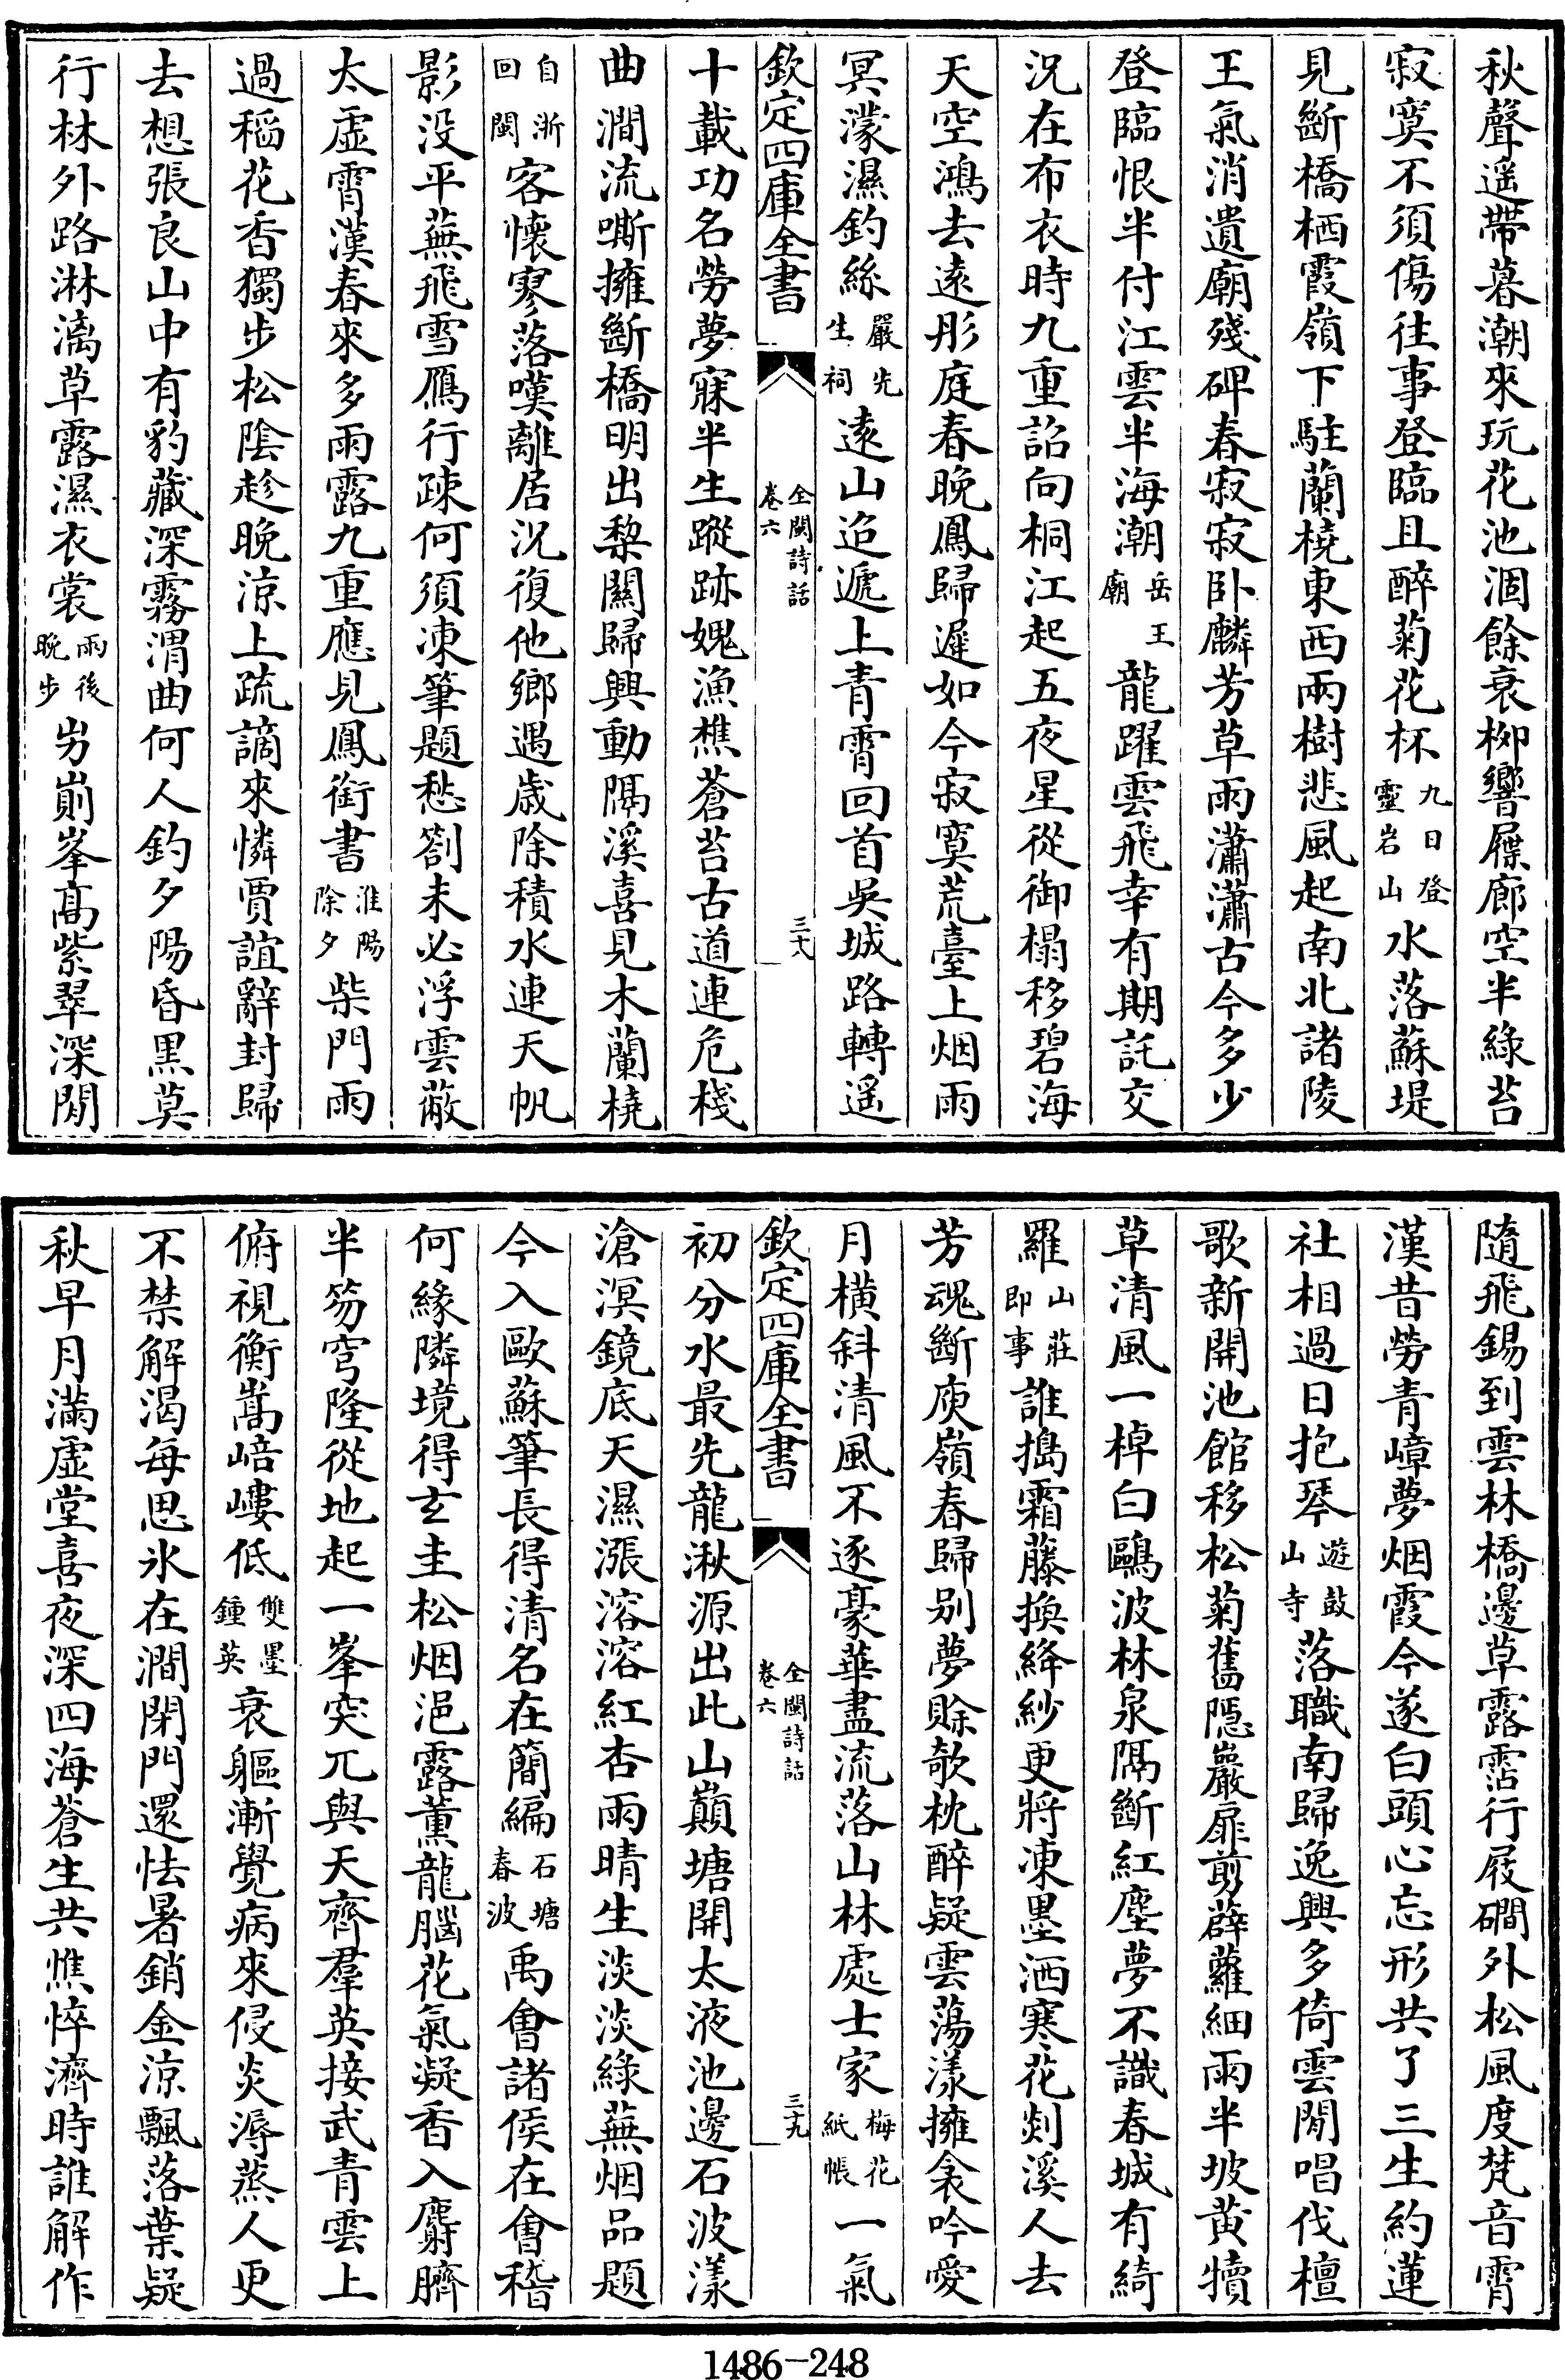 秋聲遥帶暮潮來玩花池涸餘衰柳響屧廊空半綠苔
寂寞不須傷往事登臨且醉菊花杯九日登靈岩山水落蘇堤
見斷橋栖霞嶺下駐蘭橈東西兩樹悲風起南北諸陵
王氣消遺廟殘碑春寂寂卧麟芳草雨瀟瀟古今多少
登臨恨半付江雲半海潮岳王廟龍躍雲飛幸有期託交
況在布衣時九重詔向桐江起五夜星從御榻移碧海
天空鴻去遠彤庭春晚鳳歸遲如今寂寞荒臺上烟雨
冥濛濕釣絲嚴先生祠遠山迢遞上青霄回首吳城路轉遥
欽定四庫全書
全閩詩話
卷六
三十八
十載功名勞夢寐半生蹤跡媿漁樵蒼苔古道連危棧
曲澗流嘶擁斷橋明出棃關歸興動隔溪喜見木蘭橈
自浙回閩客懷寥落嘆離居況復他鄉遇歲除積水連天帆
影没平蕪飛雪鴈行疎何須凍筆題愁劄未必浮雲蔽
太虛霄漢春來多雨露九重應見鳳銜書淮陽除夕柴門雨
過稻花香獨步松陰趁晚涼上疏謫來憐賈誼辭封歸
去想張良山中有豹藏深霧渭曲何人釣夕陽昏黑莫
行林外路淋漓草露濕衣裳雨後晚步屴崱峯高紫翠深閒
隨飛錫到雲林橋邊草露霑行屐磵外松風度梵音霄
漢昔勞青嶂夢烟霞今遂白頭心忘形共了三生約蓮
社相過日抱琴遊鼓山寺落職南歸逸興多倚雲閒唱伐檀
歌新開池館移松菊舊隱巖扉剪薜蘿細雨半坡黄犢
草清風一棹白鷗波林泉隔斷紅塵夢不識春城有綺
羅山莊即事誰搗霜藤換絳紗更將凍墨洒寒花剡溪人去
芳魂斷庾嶺春歸别夢賖欹枕醉疑雲蕩漾擁衾吟愛
月横斜清風不逐豪華盡流落山林處士家梅花紙帳一氣
欽定四庫全書
全閩詩話
卷六
三十九
初分水最先龍湫源出此山巔塘開太液池邊石波漾
滄溟鏡底天濕漲溶溶紅杏雨晴生淡淡綠蕪烟品題
今入歐蘇筆長得清名在簡編石塘春波禹會諸侯在會稽
何緣隣境得玄圭松烟浥露薰龍腦花氣凝香入麝臍
半笏穹隆從地起一峯突兀與天齊羣英接武青雲上
俯視衡嵩嶝嶁低雙墨鍾英衰軀漸覺病來侵炎溽蒸人更
不禁解渴每思氷在澗閉門還怯暑銷金涼飄落葉疑
秋早月滿虛堂喜夜深四海蒼生共憔悴濟時誰解作
1486-248